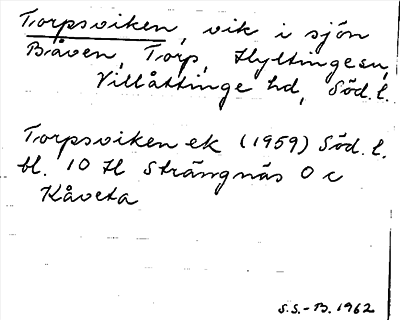 Torpsviken, vik i sjön
Båven, Torp, Hyltinge sn,
Villåttinge hd, Söd. l.
Torpsviken ek (1959) Söd. l.
bl. 10 H Strängnäs 0 c
Kåveta
S.S.-B. 1962